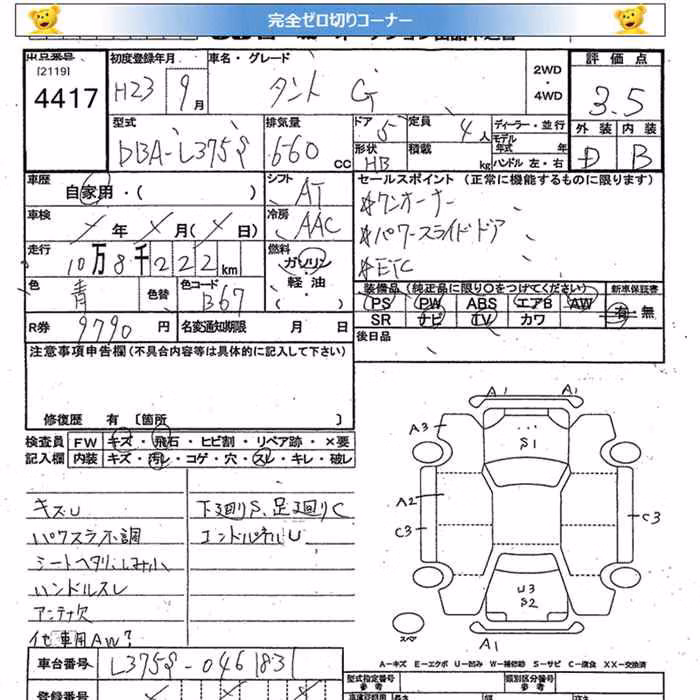 完全ゼロ切りコーナー
出品番号
[2119]
4417
初度登録年月
H23 9月
車名・グレード
タント G
2WD
・
4WD
評価点
3.5
外装 内装
D B
型式
DBA-L375S
排気量
660 CC
ドア 5
定員 4人
形状 HB
積載 kg
ディーラー・並行
モデル年式 年
ハンドル 左・右
車歴
自家用・( )
シフト
AT
車検
/年 /月(/日)
冷房
AAC
走行
10万8千222km
燃料
ガソリン
・
軽油
・
( )
色
青
色替
色コード
B67
R券 9790円
名変通知期限 月 日
セールスポイント (正常に機能するものに限ります)
*ワンオーナー
*パワースライドドア
*ETC
装備品(純正品に限り○をつけてください)
新車保証書
PS PW ABS エアB AW
SR ナビ TV カワ
有・無
後日品
注意事項申告欄(不具合内容等は具体的に記入して下さい)
修復歴 有 〔箇所 〕
検査員記入欄
FW キズ・飛石・ヒビ割・リペア跡・×要
内装 キズ・汚レ・コゲ・穴・スレ・キレ・破レ
キズU
パワスラ不調
シートヘタリ、しみ小
ハンドルスレ
アンテナ欠
他車用AW?
下廻りS、足廻りC
エンドパネルU
A1 A1
A3
S1
A2
C3 C3
U3
S2
スペア
A1
A-キズ E-エクボ U-凹み W-補修跡 S-サビ C-腐食 XX-交換済
車台番号 L375S-0461831
登録番号
型式指定番号
参考
類別区分番号
参考